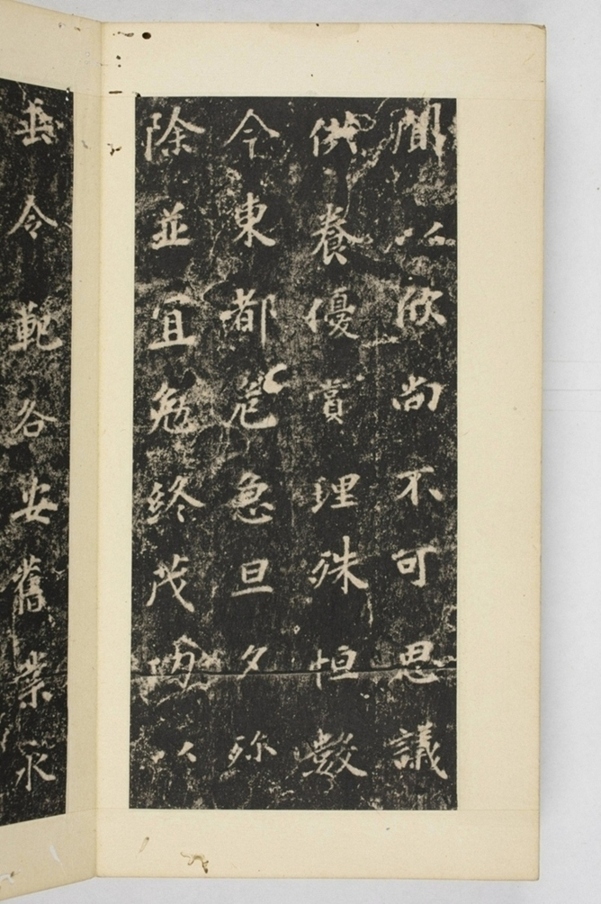 聞以欣尚不可思議
供養優賞理殊恒數
今東都危急旦夕殄
除並宜勉終茂功以
垂令範各安舊業永